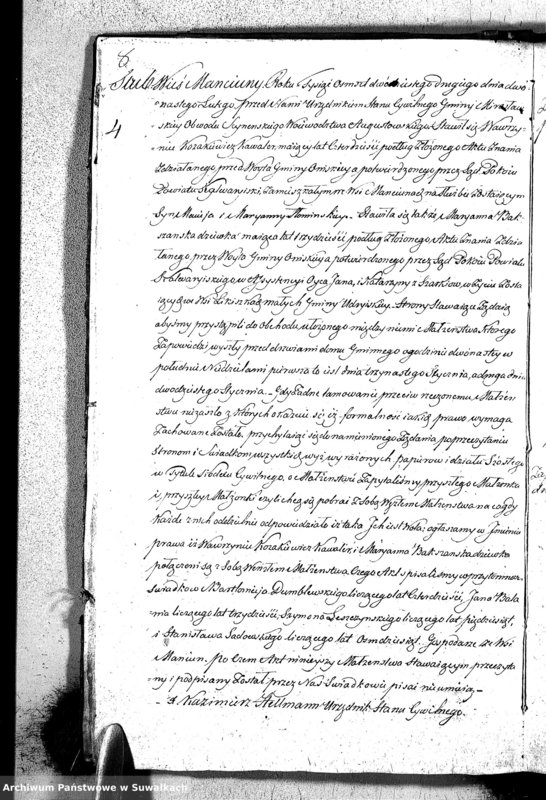 6
Szub Wieś Manciuny. Roku Tysiąc Osmset dwudziestego drugiego dnia dwu
4
nastego Lutego. przed Nami Urzędnikiem Stanu Cywilnego Gminy
Obwodu Seynenskiego Woiewództwa Augustowskiego Stawił się Wawrzy-
niec Kozakiewicz Kawaler, maiący lat Czterdzieści, podług Złożonego Aktu Znania
Zdziałanego, przed Woyta Gminy potwierdzonego przez Sąd Pokoiu
Powiatu zamieszkałym we Wsi Manciunach na służbie Zostaiącym
Syn Macieja i Maryanny Stawiła się także Maryanna Bak-
szanska dziewka maiąca lat trzydzieści podług złożonego, Aktu Znania Zdzia-
łanego, przez Woyta Gminy potwierdzonego przez Sąd Pokoiu Powiatu
w Assystencyi Oyca Jana, i Katarzyny z w życiu Zosta
iących we Wsi małych Gminy Strony Stawaiące Żądaią
abyśmy przystąpili do Obchodu ułożonego między niemi Małżeństwa Którego
Zapowiedzi wyszły przed drzwiami domu Gminnego o godzinie dwónastey w
południe w Niedzielami pierwsza to iest dnia trzynastego Stycznia, a druga dnia
dwudziestego Stycznia. Gdy Żadne tamowanie przeciw rzeczonemu Małżeń-
stwu nie zaszło z których okazuie się iż formalności iakich prawo wymaga
Zachowane Zostały, przychylaiąc się do namienionego Żądania po przeczytaniu
Stronom i Świadkom wszystkich wyż wyrażonych papierów i działu Szóstego
w Tytule Kodexu Cywilnego, o Małżeństwie Zapytaliśmy przyszłego Małżonka
i, przyszłey Małżonki czyli chcą się pobrać z Sobą Węzłem Małżeństwa na co gdy
Każde z nich oddzielnie odpowiedziało iż taka Jch iest Wola: ogłaszamy w Jmieniu
prawa iż Wawrzyniec Kozakiewicz Kawaler, i Maryanna Bakszanska dziewka
połączeni są z Sobą Węzłem Małżeństwa Czego Akt spisaliśmy w przytomności
Świadków Bartłomieja Dumblewskiego liczącego lat Czterdzieści, Jana
liczącego lat trzydzieści, Szymona Leszczynskiego liczącego lat pięćdziesiąt,
i Stanisława Sadowskiego liczącego lat Osmdziesiąt, Gospodarze ze Wsi
Manciun. po Czem Akt ninieyszy Małżeństwa Stawaiącym przeczyta
ny i podpisany Został przez Nas Świadkowie pisać nieumieią
Kazimierz Hellmann Urzędnik Stanu Cywilnego.
Archiwum Państwowe w Suwałkach